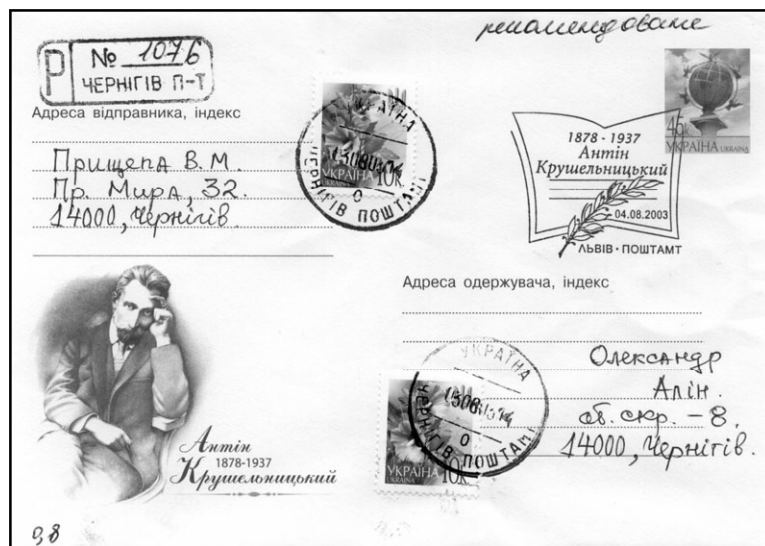 рекомендоване
Р № 1076
ЧЕРНІГІВ П-Т
Адреса відправника, індекс
Прищепа В.М.
Пр. Мира, 32.
14000, Чернігів.
УКРАЇНА
ЧЕРНІГІВ ПОШТАМТ
УКРАЇНА 10к
UKRAINA
45к
УКРАЇНА UKRAINA
1878 - 1937
Антін
Крушельницький
04.08.2003
ЛЬВІВ · ПОШТАМТ
Адреса одержувача, індекс
Олександр
Алін.
аб. скр. – 8.
14000, Чернігів.
УКРАЇНА
ЧЕРНІГІВ ПОШТАМТ
УКРАЇНА 10к
UKRAINA
Антін
1878-1937
Крушельницький
0,8